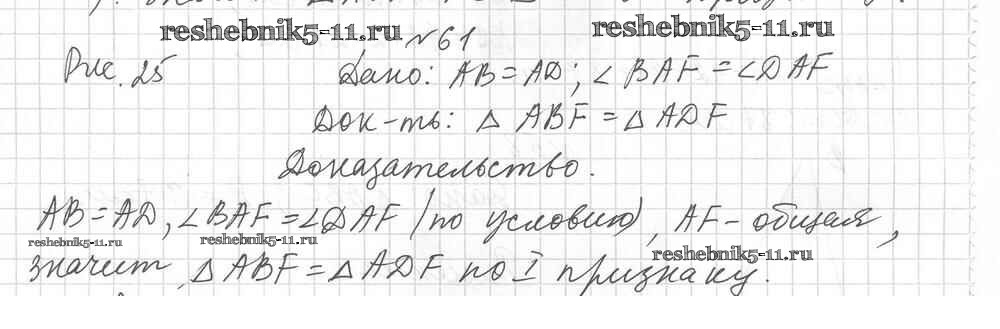 reshebnik5-11.ru reshebnik5-11.ru
№61
Рис. 25 Дано: AB = AD; ∠BAF = ∠DAF
Док-ть: △ ABF = △ ADF
Доказательство.
AB = AD, ∠BAF = ∠DAF (по условию), AF - общая,
reshebnik5-11.ru reshebnik5-11.ru
reshebnik5-11.ru
значит, △ ABF = △ ADF по I признаку.